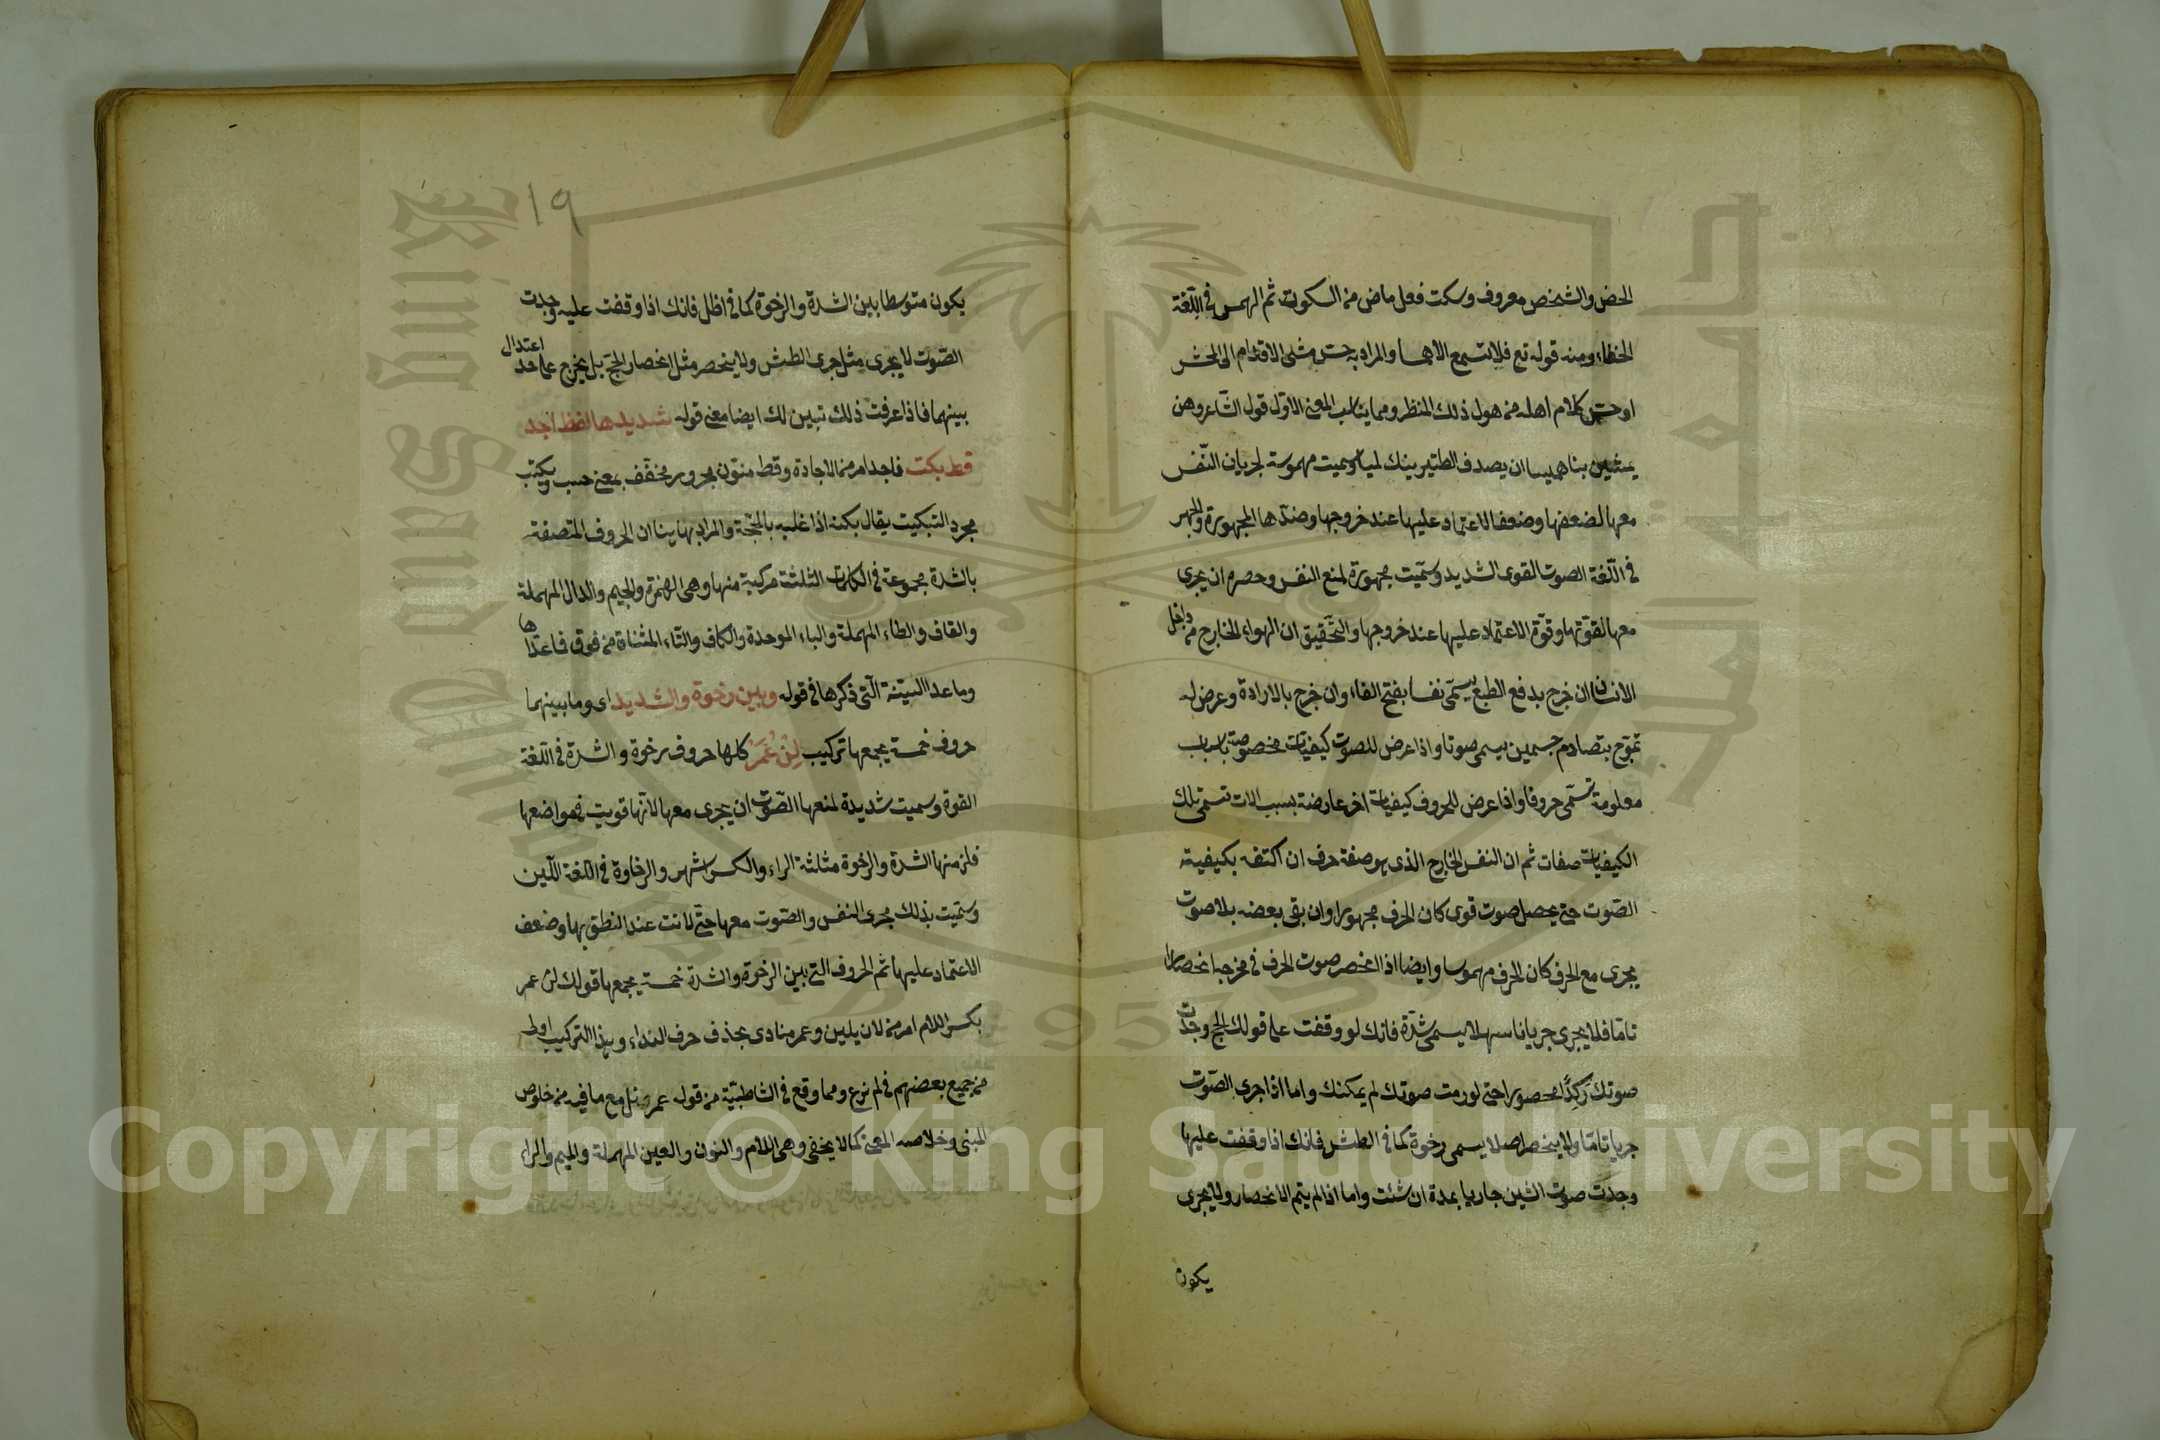 الحض والشخص معروف وسكت فعل ماض من السكوت ثم الهمس في اللغة
الخفاء ومنه قوله تع فلا تسمع الا همسا والمراد به حس مشى الاقدام الى المحشر
او حس كلام اهله من هول ذلك المنظر ومما يناسب المعنى الاول قول الشاعر وهن
يمشين بنا هميسا ان يصدف الطير ينك لميسا وسميت مهموسة لجريان النفس
معها لضعفها وضعف الاعتماد عليها عند خروجها وضدها المجهورة والجهر
في اللغة الصوت القوى الشديد وسميت مجهورة لمنع النفس وحصره ان يجرى
معها لقوتها وقوة الاعتماد عليها عند خروجها والتحقيق ان الهواء الخارج من داخل
الانسان ان خرج بدفع الطبع يسمى نفسا بفتح الفاء وان خرج بالارادة وعرض له
تموج بتصادم جسمين يسمى صوتا واذا عرض للصوت كيفيات مخصوصة باسباب
معلومة تسمى حروفا واذا عرض للحروف كيفيات اخر عارضة بسبب الالات تسمى تلك
الكيفيات صفات ثم ان النفس الخارج الذى هو صفة حرف ان اكتف بكيفية
الصوت حتى يحصل صوت قوى كان الحرف مجهورا وان بقى بعضه بلا صوت
يجرى مع الحرف كان الحرف مهموسا وايضا اذا انحصر صوت الحرف في مخرجها انحصارا
تاما فلا يجرى جريانا سهلا يسمى شدة فانك لو وقفت على قولك الحج وجدت
صوتك ركدا محصورا حتى لو رمت صوتك لم يمكنك واما اذا جرى الصوت
جريا تاما ولا ينحصر اصلا يسمى رخوة كما في الطش فانك اذا وقفت عليها
وجدت صوت الشين جاريا بمدة ان شئت واما اذا لم يتم الانحصار ولا يجرى
يكون
19
يكون متوسطا بين الشدة والرخوة كما في اظل فانك اذا وقفت عليه وجدت
الصوت لا يجرى مثل جرى الطش ولا ينحصر مثل انحصار الحج بل يخرج على حد اعتدال
بينهما فاذا عرفت ذلك تبين لك ايضا معنى قوله شديدها لفظ اجد
قط بكت فاجد امر من الاجادة وقط منون مجرور مخفف بمعنى حسب وبكت
مجرد التبكيت يقال بكته اذا غلبه بالحجة والمراد بها بينا ان الحروف المتصفة
بالشدة مجموعة في الكلمات الثلثة مركبة منها وهى الهمزة والجيم والدال المهملة
والقاف والطاء المهملة والباء الموحدة والكاف والتاء المثناة من فوق فاعداها
وما عدا الستة التى ذكرها في قوله وبين رخوة والشديد اى وما بينهما
حروف خمسة يجمعها تركيب لن عمر كلها حروف رخوة والشدة في اللغة
القوة وسميت شديدة لمنعها الصوت ان يجرى معها لانها قويت في مواضعها
فلزمنها الشدة والرخوة مثلثة الراء والكسر اشهر والرخاوة في اللغة اللين
وسميت بذلك مجرى النفس والصوت معها حتى لانت عند النطق بها وضعف
الاعتماد عليها ثم الحروف التى بين الرخوة والشدة خمسة يجمعها قولك لن عمر
بكسر اللام امر من لان يلين وعمر منادى بحذف حرف النداء وهذا التركيب اولى
من جميع بعضهم في لم نرع ومما وقع في الشاطبية من قوله عمر نل مع ما فيه من خلوص
المبنى وخلاصه المعنى كما لا يخفى وهى اللام والنون والعين المهملة والميم والراء